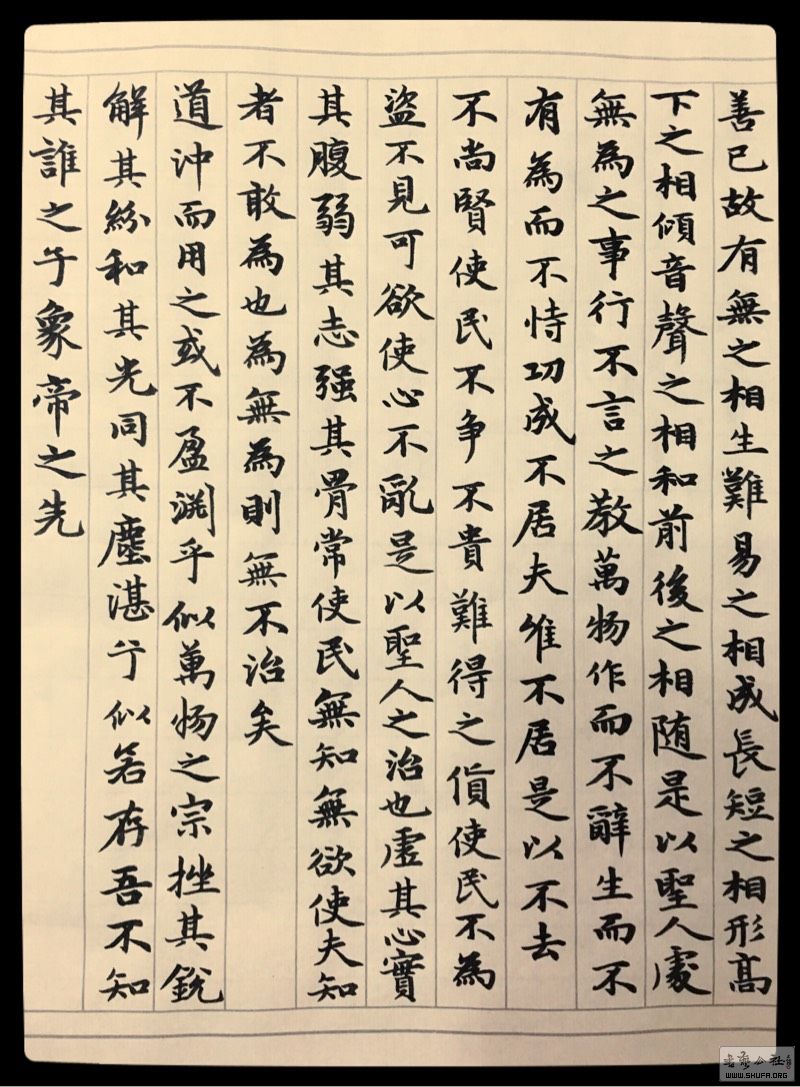 善已故有無之相生難易之相成長短之相形高
下之相傾音聲之相和前後之相随是以聖人處
無為之事行不言之教萬物作而不辭生而不
有為而不恃功成不居夫惟不居是以不去
不尚賢使民不争不貴難得之貨使民不為
盜不見可欲使心不亂是以聖人之治也虛其心實
其腹弱其志强其骨常使民無知無欲使夫知
者不敢為也為無為則無不治矣
道沖而用之或不盈淵乎似萬物之宗挫其銳
解其紛和其光同其塵湛兮似若存吾不知
其誰之子象帝之先
書藝公社
WWW.SHUFA.ORG